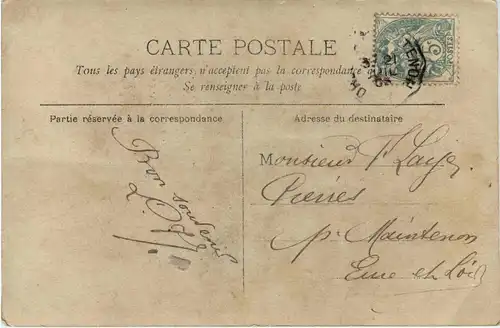 CARTE POSTALE
Tous les pays étrangers n'acceptent pas la correspondance
Se renseigner à la poste
Partie réservée à la correspondance
Adresse du destinataire
Bon souvenir
Monsieur
Pierres
pr Maintenon
Eure et Loir
POSTES